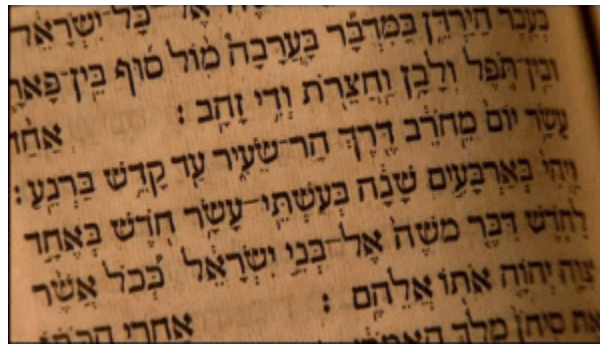 אֶל־כָּל־יִשְׂרָאֵל
בְּעֵ֖בֶר הַיַּרְדֵּ֑ן בַּמִּדְבָּ֡ר בָּֽעֲרָבָה֩ מ֨וֹל ס֜וּף בֵּֽין־פָּארָ֧
וּבֵֽין־תֹּ֛פֶל וְלָבָ֥ן וַחֲצֵרֹ֖ת וְדִ֥י זָהָֽב׃ אַחַ
עָשָׂ֥ר יוֹם֙ מֵֽחֹרֵ֔ב דֶּ֖רֶךְ הַר־שֵׂעִ֑יר עַ֖ד קָדֵ֥שׁ בַּרְנֵֽעַ׃
וַיְהִי֙ בְּאַרְבָּעִ֣ים שָׁנָ֔ה בְּעַשְׁתֵּֽי־עָשָׂ֥ר חֹ֖דֶשׁ בְּאֶחָ֣ד
לַחֹ֑דֶשׁ דִּבֶּ֤ר מֹשֶׁה֙ אֶל־בְּנֵ֣י יִשְׂרָאֵ֔ל כְּ֠כֹל אֲשֶׁ֨ר
צִוָּ֧ה יְהוָ֛ה אֹת֖וֹ אֲלֵהֶֽם׃ אַחֲרֵ֣י
אֵ֚ת סִיחֹן֙ מֶ֣לֶךְ